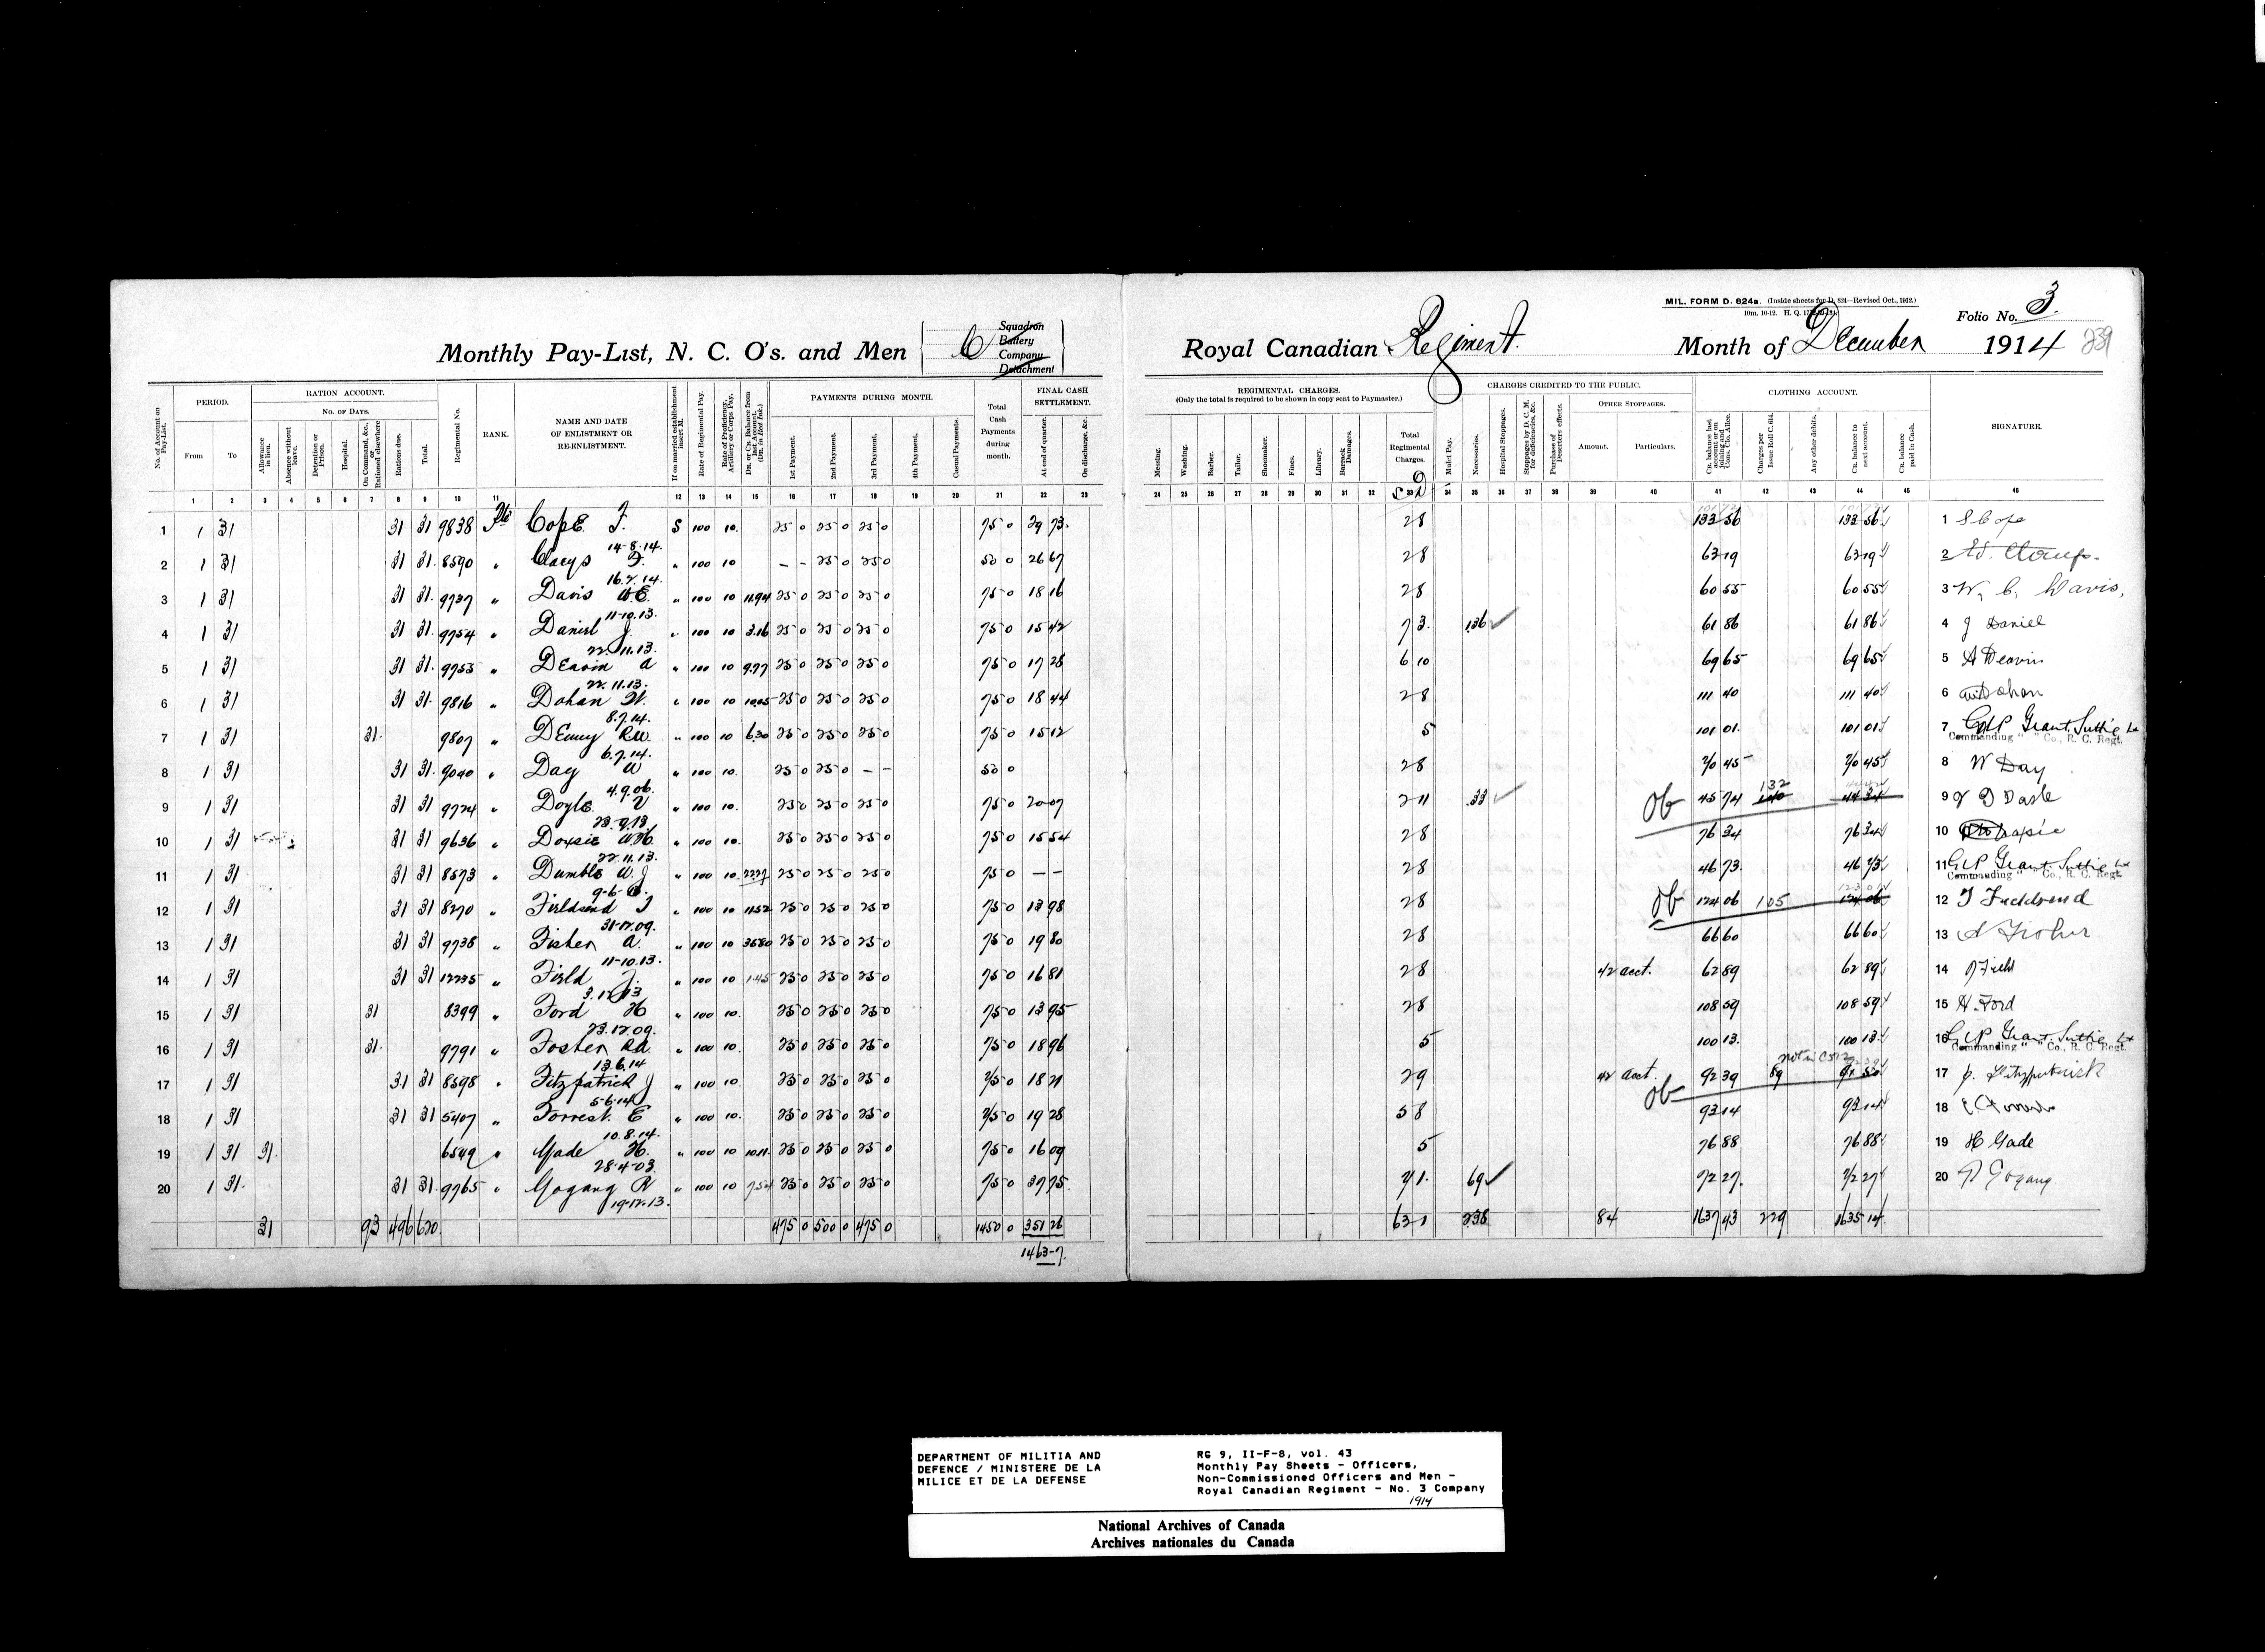 MIL. FORM D. 824a. (Inside sheets for D. 824—Revised Oct., 1912.)
Folio No. 3.
Monthly Pay-List, N. C. O's. and Men
C
Squadron
Battery
Company
Detachment
Royal Canadian Regiment.
Month of December 1914
PERIOD. RATION ACCOUNT. No. of Days. PAYMENTS DURING MONTH. FINAL CASH SETTLEMENT.
REGIMENTAL CHARGES. (Only the total is required to be shown in copy sent to Paymaster.) CHARGES CREDITED TO THE PUBLIC. OTHER STOPPAGES. CLOTHING ACCOUNT.
No. of Account on Pay-List. From To Allowance in lieu. Absence without leave. Detention or Prison. Hospital. On Command, &c., or Rationed elsewhere Rations due. Total. Regimental No. RANK. NAME AND DATE OF ENLISTMENT OR RE-ENLISTMENT. If on married establishment insert M. Rate of Regimental Pay. Rate of Proficiency, Artillery or Corps Pay. Dr. or Cr. Balance from last Account. (Dr. in Red Ink.) 1st Payment. 2nd Payment. 3rd Payment. 4th Payment. Casual Payments. Total Cash Payments during month. At end of quarter. On discharge, &c.
Messing. Washing. Barber. Tailor. Shoemaker. Fines. Library. Barrack Damages. Total Regimental Charges. Mulct Pay. Necessaries. Hospital Stoppages. Stoppages by D. C. M. for deficiencies, &c. Purchase of Deserters effects. Amount. Particulars. Cr. balance last account or on joining and Cons. Clo. Allce. Charges per Issue Roll C. 614. Any other debits. Cr. balance to next account. Cr. balance paid in Cash. SIGNATURE.
1 2 3 4 5 6 7 8 9 10 11 12 13 14 15 16 17 18 19 20 21 22 23
24 25 26 27 28 29 30 31 32 33 34 35 36 37 38 39 40 41 42 43 44 45 46
1 1 31 31 31 9838 Pte Cope F. 14-8-14. S 100 10. 25 0 25 0 25 0 75 0 29 73. 28 133 56 133 56 1 S Cope
2 1 31 31 31. 8590 " Claeys F. 16.7.14. " 100 10 – – 25 0 25 0 50 0 26 67 28 63 19 63 19 2
3 1 31 31 31. 9737 " Davis W.E. 11-10.13. " 100 10 11.94 25 0 25 0 25 0 75 0 18 16 28 60 55 60 55 3 W. C. Davis,
4 1 31 31 31. 9754 " Daniel J. 22.11.13. " 100 10 3.16 25 0 25 0 25 0 75 0 15 42 73. 136 61 86 61 86 4 J Daniel
5 1 31 31 31. 9753 " Deavin A 22.11.13. " 100 10 9.77 25 0 25 0 25 0 75 0 17 28 6 10 69 65 69 65 5 A Deavin
6 1 31 31 31. 9816 " Dohan W. 8.7.14. " 100 10 10.05 25 0 25 0 25 0 75 0 18 44 28 111 40 111 40 6 Dohan
7 1 31 31. 9807 " Denny RW 6.7.14. " 100 10 6.30 25 0 25 0 25 0 75 0 15 12 5 101 01. 101 01. 7 G.P. Grant Suttie Lt
Commanding " " Co., R. C. Regt.
8 1 31 31 31. 9040 " Day W 4.9.06. " 100 10. 25 0 25 0 – – 50 0 28 70 45 70 45 8 W Day
9 1 31 31 31 9724 " Doyle V 23.9.13. " 100 10. 25 0 25 0 25 0 75 0 20 07 2 11 .33 Ob 45 74 132 44 34 9
10 1 31 31 31 9636 " Doxsie W.H. 22.11.13. " 100 10. 25 0 25 0 25 0 75 0 15 54 28 76 34 76 34 10
11 1 31 31 31 8573 " Dumble W.J " 100 10. 22.27 25 0 25 0 25 0 75 0 – – 28 46 73. 46 73 11 G.P. Grant Suttie Lt
Commanding " " Co., R. C. Regt.
12 1 31 31 31 8270 " Fieldsend J 31-12.09. " 100 10 11.52 25 0 25 0 25 0 75 0 13 98 28 Ob 124 06 105 124 06 12 J Fieldsend
13 1 31 31 31 9738 " Fisher A. 11-10.13. " 100 10 36.80 25 0 25 0 25 0 75 0 19 80 28 66 60 66 60 13 A Fisher
14 1 31 31 31 12235 " Field J. 3.12.13 " 100 10 1.45 25 0 25 0 25 0 75 0 16 81 28 42 acct. 62 89 62 89 14 J Field
15 1 31 31 8399 " Ford H 23.12.09. " 100 10. 25 0 25 0 25 0 75 0 13 95 28 108 59 108 59 15 H. Ford
16 1 31 31. 9791 " Foster RA. 13.6.14 " 100 10. 25 0 25 0 25 0 75 0 18 96 5 100 13. 100 13. 16 G.P. Grant Suttie Lt
Commanding " " Co., R. C. Regt.
17 1 31 31 31 8598 " Fitzpatrick J 5-6-14 " 100 10. 25 0 25 0 25 0 75 0 18 21 29 42 acct. Ob 92 39 89 91 50 17 J. Fitzpatrick
18 1 31 31 31 5407 " Forrest. E 10.8.14. " 100 10. 25 0 25 0 25 0 75 0 19 28 58 93 14 93 14 18 E Forrest
19 1 31 31. 6549 " Gade H. 28-4-03. " 100 10 10.11. 25 0 25 0 25 0 75 0 16 09 5 76 88 76 88 19 H Gade
20 1 31. 31 31. 9765 " Gogang R 19.12.13. " 100 10 7.54 25 0 25 0 25 0 75 0 37 75. 71. 69 72 27. 72 27 20 Gogang
31 93 496 620. 475 0 500 0 475 0 1450 0 351 26 631 238 84 1637 43 229 1635 14.
DEPARTMENT OF MILITIA AND
DEFENCE / MINISTERE DE LA
MILICE ET DE LA DEFENSE
RG 9, II-F-8, vol. 43
Monthly Pay Sheets - Officers,
Non-Commissioned Officers and Men -
Royal Canadian Regiment - No. 3 Company
1914
National Archives of Canada
Archives nationales du Canada